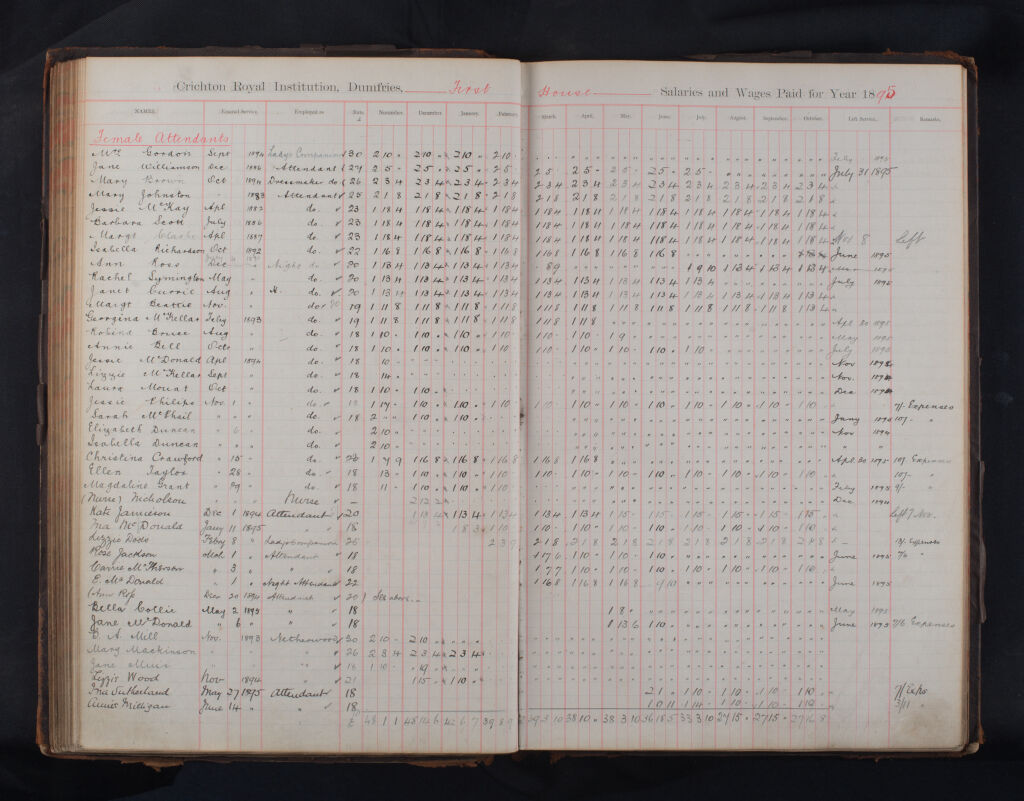 Crichton Royal Institution, Dumfries, First House Salaries and Wages Paid for Year 1895
NAMES. Entered Service. Employed as Rate £ November. December. January. February. March. April. May. June. July. August. September. October. Left Service. Remarks.
Female Attendants
Mrs Gordon Sept 1894 Lady's Companion 30 2 10 " 2 10 " 2 10 " 2 10 "
Jane Williamson Dec 1886 Attendant 27 2 5 " 2 5 " 2 5 " 2 5 2 5 2 5 2 5 2 5 2 5 July 31 1895
Mary Brown Oct 1894 Dressmaker do 26 2 3 4 2 3 4 2 3 4 2 3 4 2 3 4 2 3 4 2 3 4 2 3 4 2 3 4 2 3 4 2 3 4 2 3 4
Mary Johnston 1883 Attendant 25 2 1 8 2 1 8 2 1 8 2 1 8 2 1 8 2 1 8 2 1 8 2 1 8 2 1 8 2 1 8 2 1 8 2 1 8
Jessie McKay Apl 1882 do. 23 1 18 4 1 18 4 1 18 4 1 18 4 1 18 4 1 18 4 1 18 4 1 18 4 1 18 4 1 18 4 1 18 4 1 18 4
Barbara Scott July 1886 do. 23 1 18 4 1 18 4 1 18 4 1 18 4 1 18 4 1 18 4 1 18 4 1 18 4 1 18 4 1 18 4 1 18 4 1 18 4
Margt Clark Apl 1887 do. 23 1 18 4 1 18 4 1 18 4 1 18 4 1 18 4 1 18 4 1 18 4 1 18 4 1 18 4 1 18 4 1 18 4 1 18 4 Nov 8 Left
Isabella Richardson Oct 1892 do. 22 1 16 8 1 16 8 1 16 8 1 16 8 1 16 8 1 16 8 1 16 8 1 16 8 June 1895
Ann Ross Dec Night do 20 1 13 4 1 13 4 1 13 4 1 13 4 8 9 1 9 10 1 13 4 1 13 4 1 13 4
Rachel Symington May " do. 20 1 13 4 1 13 4 1 13 4 1 13 4 1 13 4 1 13 4 1 13 4 1 13 4 1 13 4 July 1895
Janet Currie Aug " do. 20 1 13 4 1 13 4 1 13 4 1 13 4 1 13 4 1 13 4 1 13 4 1 13 4 1 13 4 1 13 4 1 13 4 1 13 4
Margt Beattie Nov. " do 19 1 11 8 1 11 8 1 11 8 1 11 8 1 11 8 1 11 8 1 11 8 1 11 8 1 11 8 1 11 8 1 11 8 1 13 4
Georgina McKellar Feby 1893 do. 19 1 11 8 1 11 8 1 11 8 1 11 8 1 11 8 1 11 8 Apl 30 1895
Robina Bruce Aug " do. 18 1 10 1 10 1 10 1 10 1 10 1 10 1 9 May 1895
Annie Bell Octo " do. 18 1 10 1 10 1 10 1 10 1 10 1 10 1 10 1 10 1 10 July 1895
Jessie McDonald Apl 1894 do. 18 10 Nov 1894
Lizzie McKellar Sept " do. 18 14 Nov. 1894
Laura Mount Oct " do. 18 1 10 1 10 Dec 1894
Jessie Philips Nov 1 " do. 18 1 17 1 10 1 10 1 10 1 10 1 10 1 10 1 10 1 10 1 10 1 10 1 10 7/- Expenses
Sarah McPhail " " do. 18 2 " 1 10 1 10 Jany 1895 10/- "
Elizabeth Duncan " 6 " do. 2 10 Nov 1894
Isabella Duncan " " do. 2 10
Christina Crawford " 15 " do. 22 1 7 9 1 16 8 1 16 8 1 16 8 1 16 8 1 16 8 Apl 30 1895 10/- Expenses
Ellen Taylor " 28 " do. 18 13 1 10 1 10 1 10 1 10 1 10 1 10 1 10 1 10 1 10 1 10 1 10 10/-
Magdaline Grant " 29 " do. 18 11 1 10 1 10 1 10 Feby 1895
(Nurse) Nicholson " " Nurse — 2 12 Dec 1894
Kate Jamieson Dec 1 1894 Attendant 20 1 13 4 1 13 4 1 13 4 1 13 4 1 13 4 1 15 1 15 1 15 1 15 1 15 1 15 Left 7 Nov.
Ina McDonald Jany 11 1895 " 18 1 8 3 1 10 1 10 1 10 1 10 1 10 1 10 1 10 1 10 1 10
Lizzie Dods Feby 8 " Ladys Companion 25 2 3 9 2 1 8 2 1 8 2 1 8 2 1 8 2 1 8 2 1 8 2 1 8 2 1 8 Expenses
Rose Jackson Mch 1 " Attendant 18 1 7 6 1 10 1 10 1 10 June 1895 7/6 "
Carrie McPherson " 3 " " 18 1 7 7 1 10 1 10 1 10 1 10 1 10 1 10 1 10
E. McDonald " 1 " Night Attendant 22 1 16 8 1 16 8 1 16 8 9 10 June 1895
(Ann Ross Dec 20 1894 Attendant 20) See above
Bella Collie May 2 1895 " 18 1 8 " May 1895
Jane McDonald " 6 " " 18 1 13 6 1 10 June 1895 7/6 Expenses
E. A. Mill Nov. 1893 Netherwood 30 2 10 2 10
Mary Mackinson " " " 26 2 3 4 2 3 4 2 3 4
Jane Muir " " " 18 1 10 19
Lizzie Wood Nov 1894 " 21 1 15 1 10
Ina Sutherland May 27 1895 Attendant 18 2 1 1 10 1 10 1 10 1 10 7/ Exps
Annie Milligan June 14 " " 18 1 9 11 1 14 1 10 1 10 1 10 3/11 "
£ 48 1 1 48 14 6 42 6 7 39 8 9 39 3 10 38 10 " 38 3 10 36 18 5 33 3 10 27 15 " 27 15 " 27 16 8